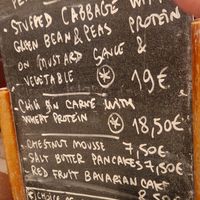 - STUFFED CABBAGE WITH
GREEN BEAN & PEAS PROTEIN
ON MUSTARD SAUCE &
VEGETABLE 19€
- CHILI SIN CARNE WITH
WHEAT PROTEIN 18,50€
- CHESTNUT MOUSSE 7,50€
- SALT BUTTER PANCAKES 7,50€
- RED FRUIT BAVARIAN CAKE
CHOICE OF 8,50€